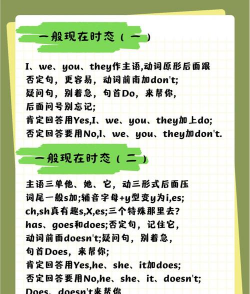 一般现在时态（一）
I、we、you、they作主语,动词原形后面跟
否定句，更容易，动词前面加don't;
疑问句，别着急，句首Do，来帮你，
后面问号别忘记;
肯定回答用Yes,I、we、you、they加上do;
否定回答要用No,I、we、you、they加don't.
一般现在时态（二）
主语三单他、她、它，动三形式后面压
词尾一般s加;辅音字母+y型变y为i,es;
ch,sh真有趣s,X,es;三个特殊那里去?
has、goes和does;否定句，记住它，
动词前面doesn't;疑问句，别着急，
句首Does，来帮你;
肯定回答用Yes,he、she、it加does;
否定回答要用No,he、she、it、doesn't;
Does、doesn't来帮你